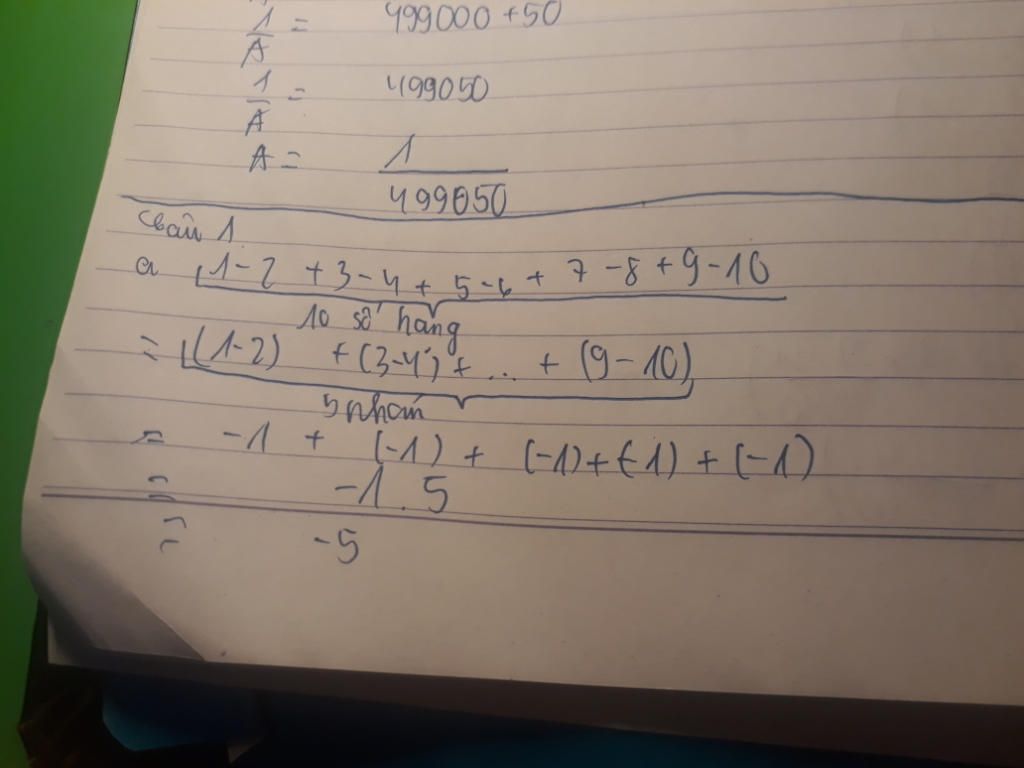 1/A = 499000 + 50
1/A = 499050
A = 1/499050
Bài 1.
a 1-2 +3-4+ 5-6 + 7-8+9-10
10 số hạng
= (1-2) +(3-4)+ ... + (9-10)
5 nhóm
= -1 + (-1) + (-1)+(-1)+(-1)
= -1.5
= -5